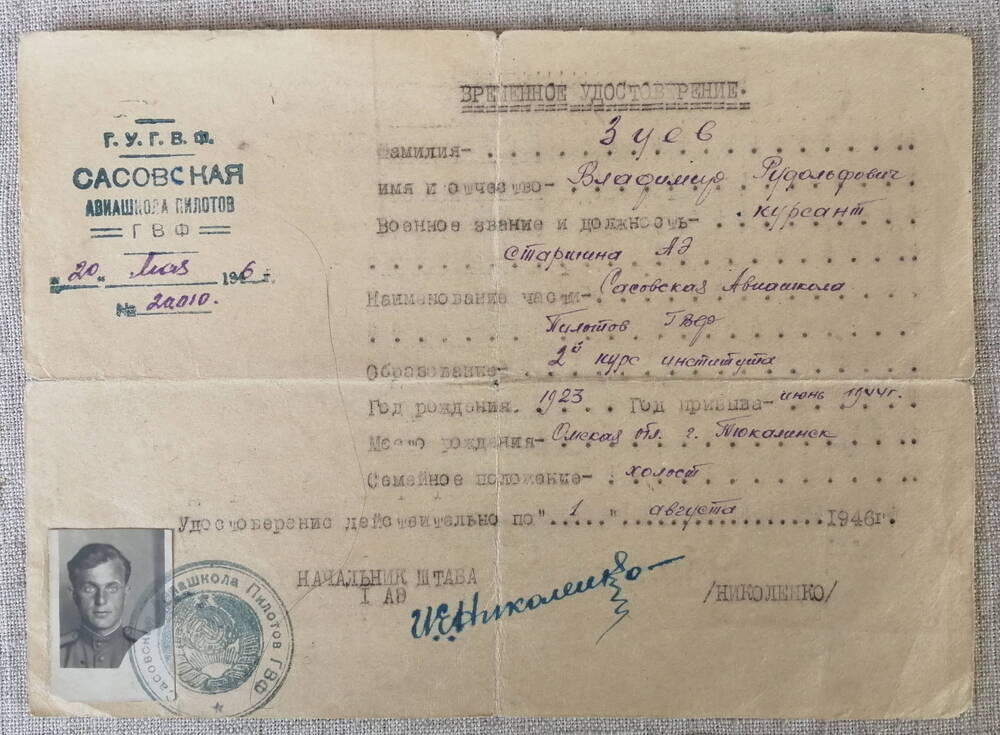 Г. У. Г. В. Ф.
САСОВСКАЯ
АВИАШКОЛА ПИЛОТОВ
ГВФ
"20" Мая 1946 г.
№ 20010.
ВРЕМЕННОЕ УДОСТОВЕРЕНИЕ.
Фамилия- Зуев
имя и отчество- Владимир Рудольфович
Военное звание и должность- курсант
старшина АЭ
Наименование части- Сасовская Авиашкола
Пилотов ГВФ
Образование- 2й курс института
Год рождения. 1923 Год призыва- июнь 1944г.
Место рождения- Омская обл. г. Тюкалинск
Семейное положение- холост
Удостоверение действительно по "1" августа 1946г.
НАЧАЛЬНИК ШТАБА
I АЭ
И.Е.Николенко
/НИКОЛЕНКО/
Сасовская Авиашкола Пилотов ГВФ